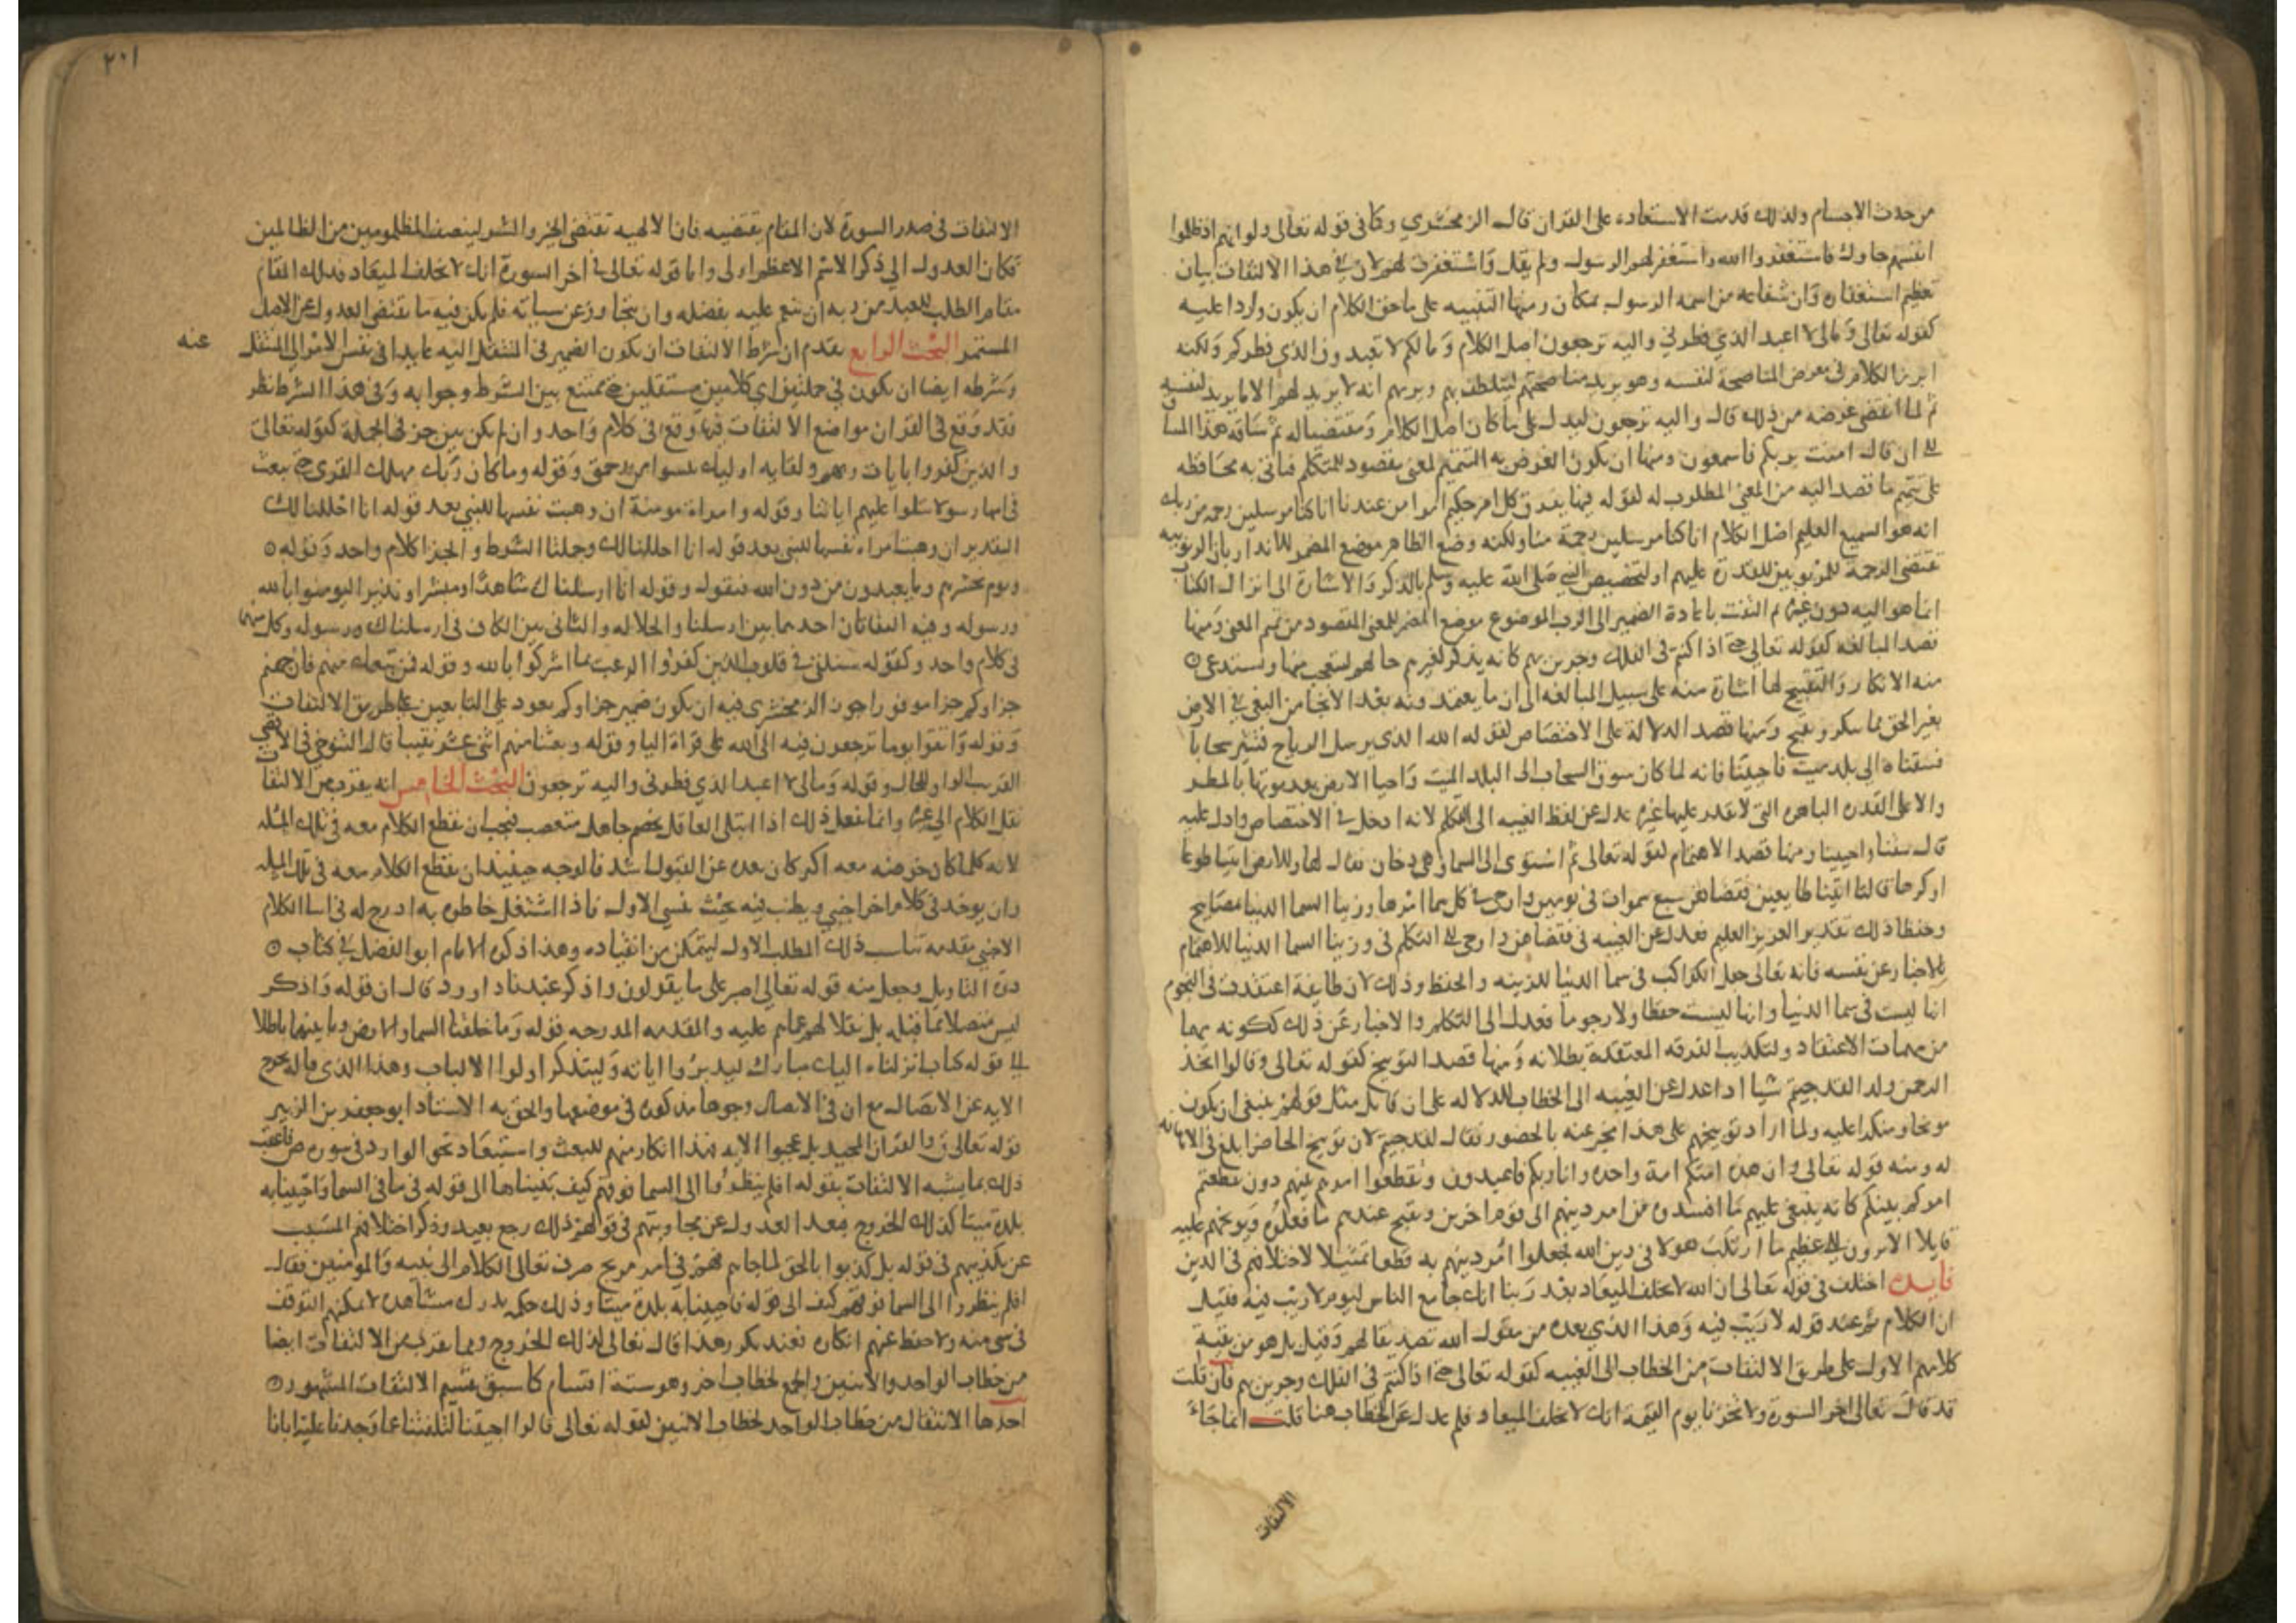 من حدث الاجسام ولذلك قدمت الاستعاده على القران قال الزمخشري وكا في قوله تعالى ولو انهم اذ ظلموا
انفسهم جاوك فاستغفروا الله واستغفر لهم الرسول ولم يقل واستغفرت لهم لان في هذا الالتفات بيان
تعظيم استغفاره وان شفاعة من اسمه الرسول بمكان ومنها التنبيه على ما حق الكلام ان يكون واردا عليه
كقوله تعالى وما لى لا اعبد الذي فطرني واليه ترجعون اصل الكلام وما لكم لا تعبدون الذي فطركم ولكنه
ابرز الكلام في معرض المناصحة لنفسه وهو يريد مناصحتهم ليتلطف بهم ويريهم انه لا يريد لهم الا ما يريد لنفسه
ثم لما انقضى غرضه من ذلك قال واليه ترجعون ليدل على ما كان اصل الكلام ومقتضيا له ثم ساقه هذا المساق
الى ان قال امنت بربكم فاسمعون ومنها ان يكون الغرض به التتميم لمعنى مقصود للمتكلم فياتي به محافظه
على تتميم ما قصد اليه من المعنى المطلوب له لقوله فيها يفرق كل امر حكيم امرا من عندنا انا كنا مرسلين رحمة من ربك
انه هو السميع العليم اصل الكلام انا كنا مرسلين رحمة منا ولكنه وضع الظاهر موضع المضمر للانذار بان الربوبيه
تقتضى الرحمة للمربوبين للقدرة عليهم او لتخصيص النبي صلى الله عليه وسلم بالذكر والاشارة الى انزال الكتاب
انما هو اليه دون غيره ثم التفت باعادة الضمير الى الرب الموضوع موضع المضمر للمعنى المقصود من تتميم المعنى ومنها
قصد المبالغه كقوله تعالى حتى اذا كنتم في الفلك وجرين بهم كانه يذكر لغيرهم حالهم ليتعجب منها ويستدعى
منه الانكار والتقبيح لها اشارة منه على سبيل المبالغه الى ان ما يعتمدونه بعد الانجا من البغي في الارض
بغير الحق مما ينكر ويقبح ومنها قصد الدلالة على الاختصاص لقوله الله الذى يرسل الرياح فتثير سحابا
فسقناه الى بلد ميت فاحيينا فانه لما كان سوق السحاب الى البلد الميت واحيا الارض بعد موتها بالمطر
دالا على القدرة الباهرة التي لا يقدر عليها غيره عدل عن لفظ الغيبه الى التكلم لانه ادخل في الاختصاص وادل عليه
قال سقنا واحيينا ومنها قصد الاهتمام لقوله تعالى ثم استوى الى السما وهى دخان فقال لها وللارض ايتيا طوعا
او كرها قالتا اتينا طايعين فقضاهن سبع سموات في يومين واوحى في كل سما امرها وزينا السما الدنيا بمصابيح
وحفظا ذلك تقدير العزيز العليم فعدل عن الغيبه في فقضاهن واوحى الى التكلم في وزينا السما الدنيا للاهتمام
بالاخبار عن نفسه فانه تعالى جعل الكواكب في سما الدنيا للزينه والحفظ وذلك لان طايفة اعتقدت في النجوم
انها ليست في سما الدنيا وانها ليست حفظا ولا رجوما فعدل الى التكلم والاخبار عن ذلك لكونه مهما
من مهمات الاعتقاد ولتكذيب الفرقه المعتقدة بطلانه ومنها قصد التوبيخ كقوله تعالى وقالوا اتخذ
الرحمن ولدا لقد جيتم شيا ادا عدل عن الغيبه الى الخطاب للدلاله على ان قايل مثل قولهم ينبغى ان يكون
موبخا ومنكرا عليه ولما اراد توبيخهم على هذا اخبر عنه بالحضور فقال لقد جيتم لان توبيخ الحاضر ابلغ في الاهانه
له ومنه قوله تعالى وان هذه امتكم امة واحدة وانا ربكم فاعبدون وتقطعوا امرهم بينهم دون تقطعتم
امركم بينكم كانه ينعى عليهم ما افسدوه من امر دينهم الى قوم اخرين ويقبح عندهم ما فعلوه ويوبخهم عليه
قايلا الا ترون الى عظيم ما ارتكب هولا في دين الله فجعلوا امر دينهم به قطعا تمثيلا لاختلافهم في الدين
فايدة اختلف في قوله تعالى ان الله لا يخلف الميعاد بعد ربنا انك جامع الناس ليوم لا ريب فيه فقيل
ان الكلام تم عند قوله لا ريب فيه وهذا الذي بعده من مقول الله تصديقا لهم وقيل بل هو من بقية
كلامهم الاول على طريق الالتفات من الخطاب الى الغيبه كقوله تعالى حتى اذا كنتم في الفلك وجرين بهم فان قلت
قد قال تعالى اخر السورة ولا تخزنا يوم القيمة انك لا تخلف الميعاد فلم عدل عن الخطاب هنا قلت انما جاء
الالتفات
٢٠١
الالتفات في صدر السورة لان المقام يقتضيه فان الالهيه تقتضى الخير والشر لينصف المظلومين من الظالمين
فكان العدول الى ذكر الاسم الاعظم اولى واما قوله تعالى في اخر السورة انك لا تخلف الميعاد فذلك المقام
مقام الطلب للعبد من ربه ان ينعم عليه بفضله وان يتجاوز عن سيياته فلم يكن فيه ما يقتضى العدول عن الاصل
المستمر البحث الرابع تقدم ان شرط الالتفات ان يكون الضمير في المنتقل اليه عايدا في نفس الامر الى المنتقل
عنه
وشرطه ايضا ان يكون في جملتين اي كلامين مستقلين حتى يمتنع بين الشرط وجوابه وفي هذا الشرط نظر
فقد وقع في القران مواضع الالتفات فيها وقع في كلام واحد وان لم يكن بين جزئى الجملة كقوله تعالى
والذين كفروا بايات ربهم ولقايه اوليك يئسوا من رحمتى وقوله وما كان ربك مهلك القرى حتى يبعث
في امها رسولا يتلوا عليهم اياتنا وقوله وامراة مومنة ان وهبت نفسها للنبي بعد قوله انا احللنا لك
التقدير ان وهبت امراة نفسها للنبي بعد قوله انا احللنا لك وجملتا الشرط والجزا كلام واحد وقوله
ويوم نحشرهم وما يعبدون من دون الله فيقول وقوله انا ارسلناك شاهدا ومبشرا ونذيرا ليومنوا بالله
ورسوله وفيه التفاتان احدهما بين ارسلنا والجلاله والثاني بين الكاف في ارسلناك ورسوله وكل منهما
في كلام واحد وكقوله سنلقى في قلوب الذين كفروا الرعب بما اشركوا بالله وقوله فمن تبعك منهم فان جهنم
جزاوكم جزا موفورا جوز الزمخشرى فيه ان يكون ضمير جزاوكم يعود على التابعين على طريق الالتفات
وقوله واتقوا يوما ترجعون فيه الى الله على قراة اليا وقوله وبعثنا منهم اثنى عشر نقيبا قال التنوخي في الاقصى
القريب الواو للحال وقوله وما لى لا اعبد الذي فطرني واليه ترجعون البحث الخامس انه يقرب من الالتفات
نقل الكلام الى غيره وانما يفعل ذلك اذا ابتلى العاقل بخصم جاهل متعصب فيجب ان يقطع الكلام معه في تلك المسله
لانه كلما كان خوضه معه اكثر كان بعده عن القبول اشد فالوجه حينيذ ان يقطع الكلام معه في تلك المسله
وان يوخذ في كلام اخر اجنبي ويطنب فيه بحيث ينسى الاول فاذا اشتغل خاطره به ادرج له في اثنا الكلام
الاجنبي مقدمه تناسب ذلك المطلب الاول ليتمكن من انقياده وهذا ذكره الامام ابو الفضل في كتاب
درة التاويل وجعل منه قوله تعالى اصبر على ما يقولون واذكر عبدنا داوود قال ان قوله واذكر
ليس متصلا بما قبله بل نقلا لهم عما هم عليه والمقدمه المدرجه قوله وما خلقنا السما والارض وما بينهما باطلا
الى قوله كتاب انزلناه اليك مبارك ليدبروا اياته وليتذكر اولوا الالباب وهذا الذي قاله يخرج
الايه عن الاتصال مع ان في الاتصال وجوها مذكورة في موضعها والحق به الاستاد ابو جعفر بن الزبير
قوله تعالى ق والقران المجيد بل عجبوا الايه فهذا انكار منهم للبعث واستبعاد نحو الوارد في سورة ص فاعقب
ذلك بما يشبه الالتفات بقوله افلم ينظروا الى السما فوقهم كيف بنيناها الى قوله في ما في السما واحيينا به
بلدة ميتا كذلك الخروج فبعد العدول عن مجاوبتهم في قولهم ذلك رجع بعيد وذكر اختلافهم المسبب
عن تكذيبهم في قوله بل كذبوا بالحق لما جاهم فهم في امر مريج صرف تعالى الكلام الى نبيه والمومنين فقال
افلم ينظروا الى السما فوقهم كيف الى قوله فاحيينا به بلدة ميتا وذلك حكمه يدرك مشاهده لا يمكنهم التوقف
في شى منه ولا حفظ عنهم انكاره فعند تكرر هذا قال تعالى كذلك الخروج ومما يقرب من الالتفات ايضا
من خطاب الواحد والاثنين والجمع لخطاب اخر وهو ستة اقسام كما سبق تقسيم الالتفات المشهور
احدها الانتقال من خطاب الواحد لخطاب الاثنين لقوله تعالى قالوا اجيتنا لتلفتنا عما وجدنا عليه ابانا